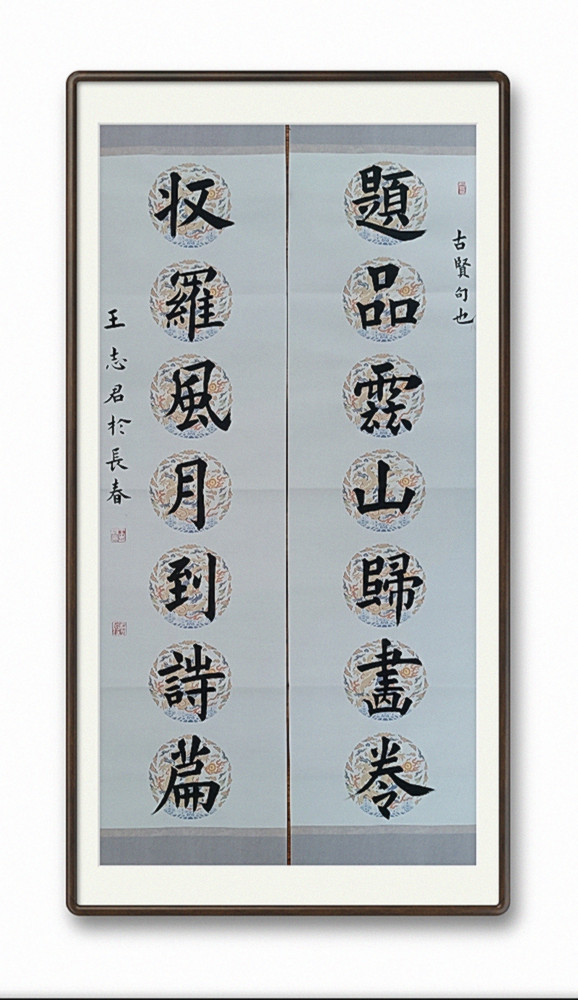 古賢句也
題品雲山歸畫卷
收羅風月到詩篇
王志君於長春